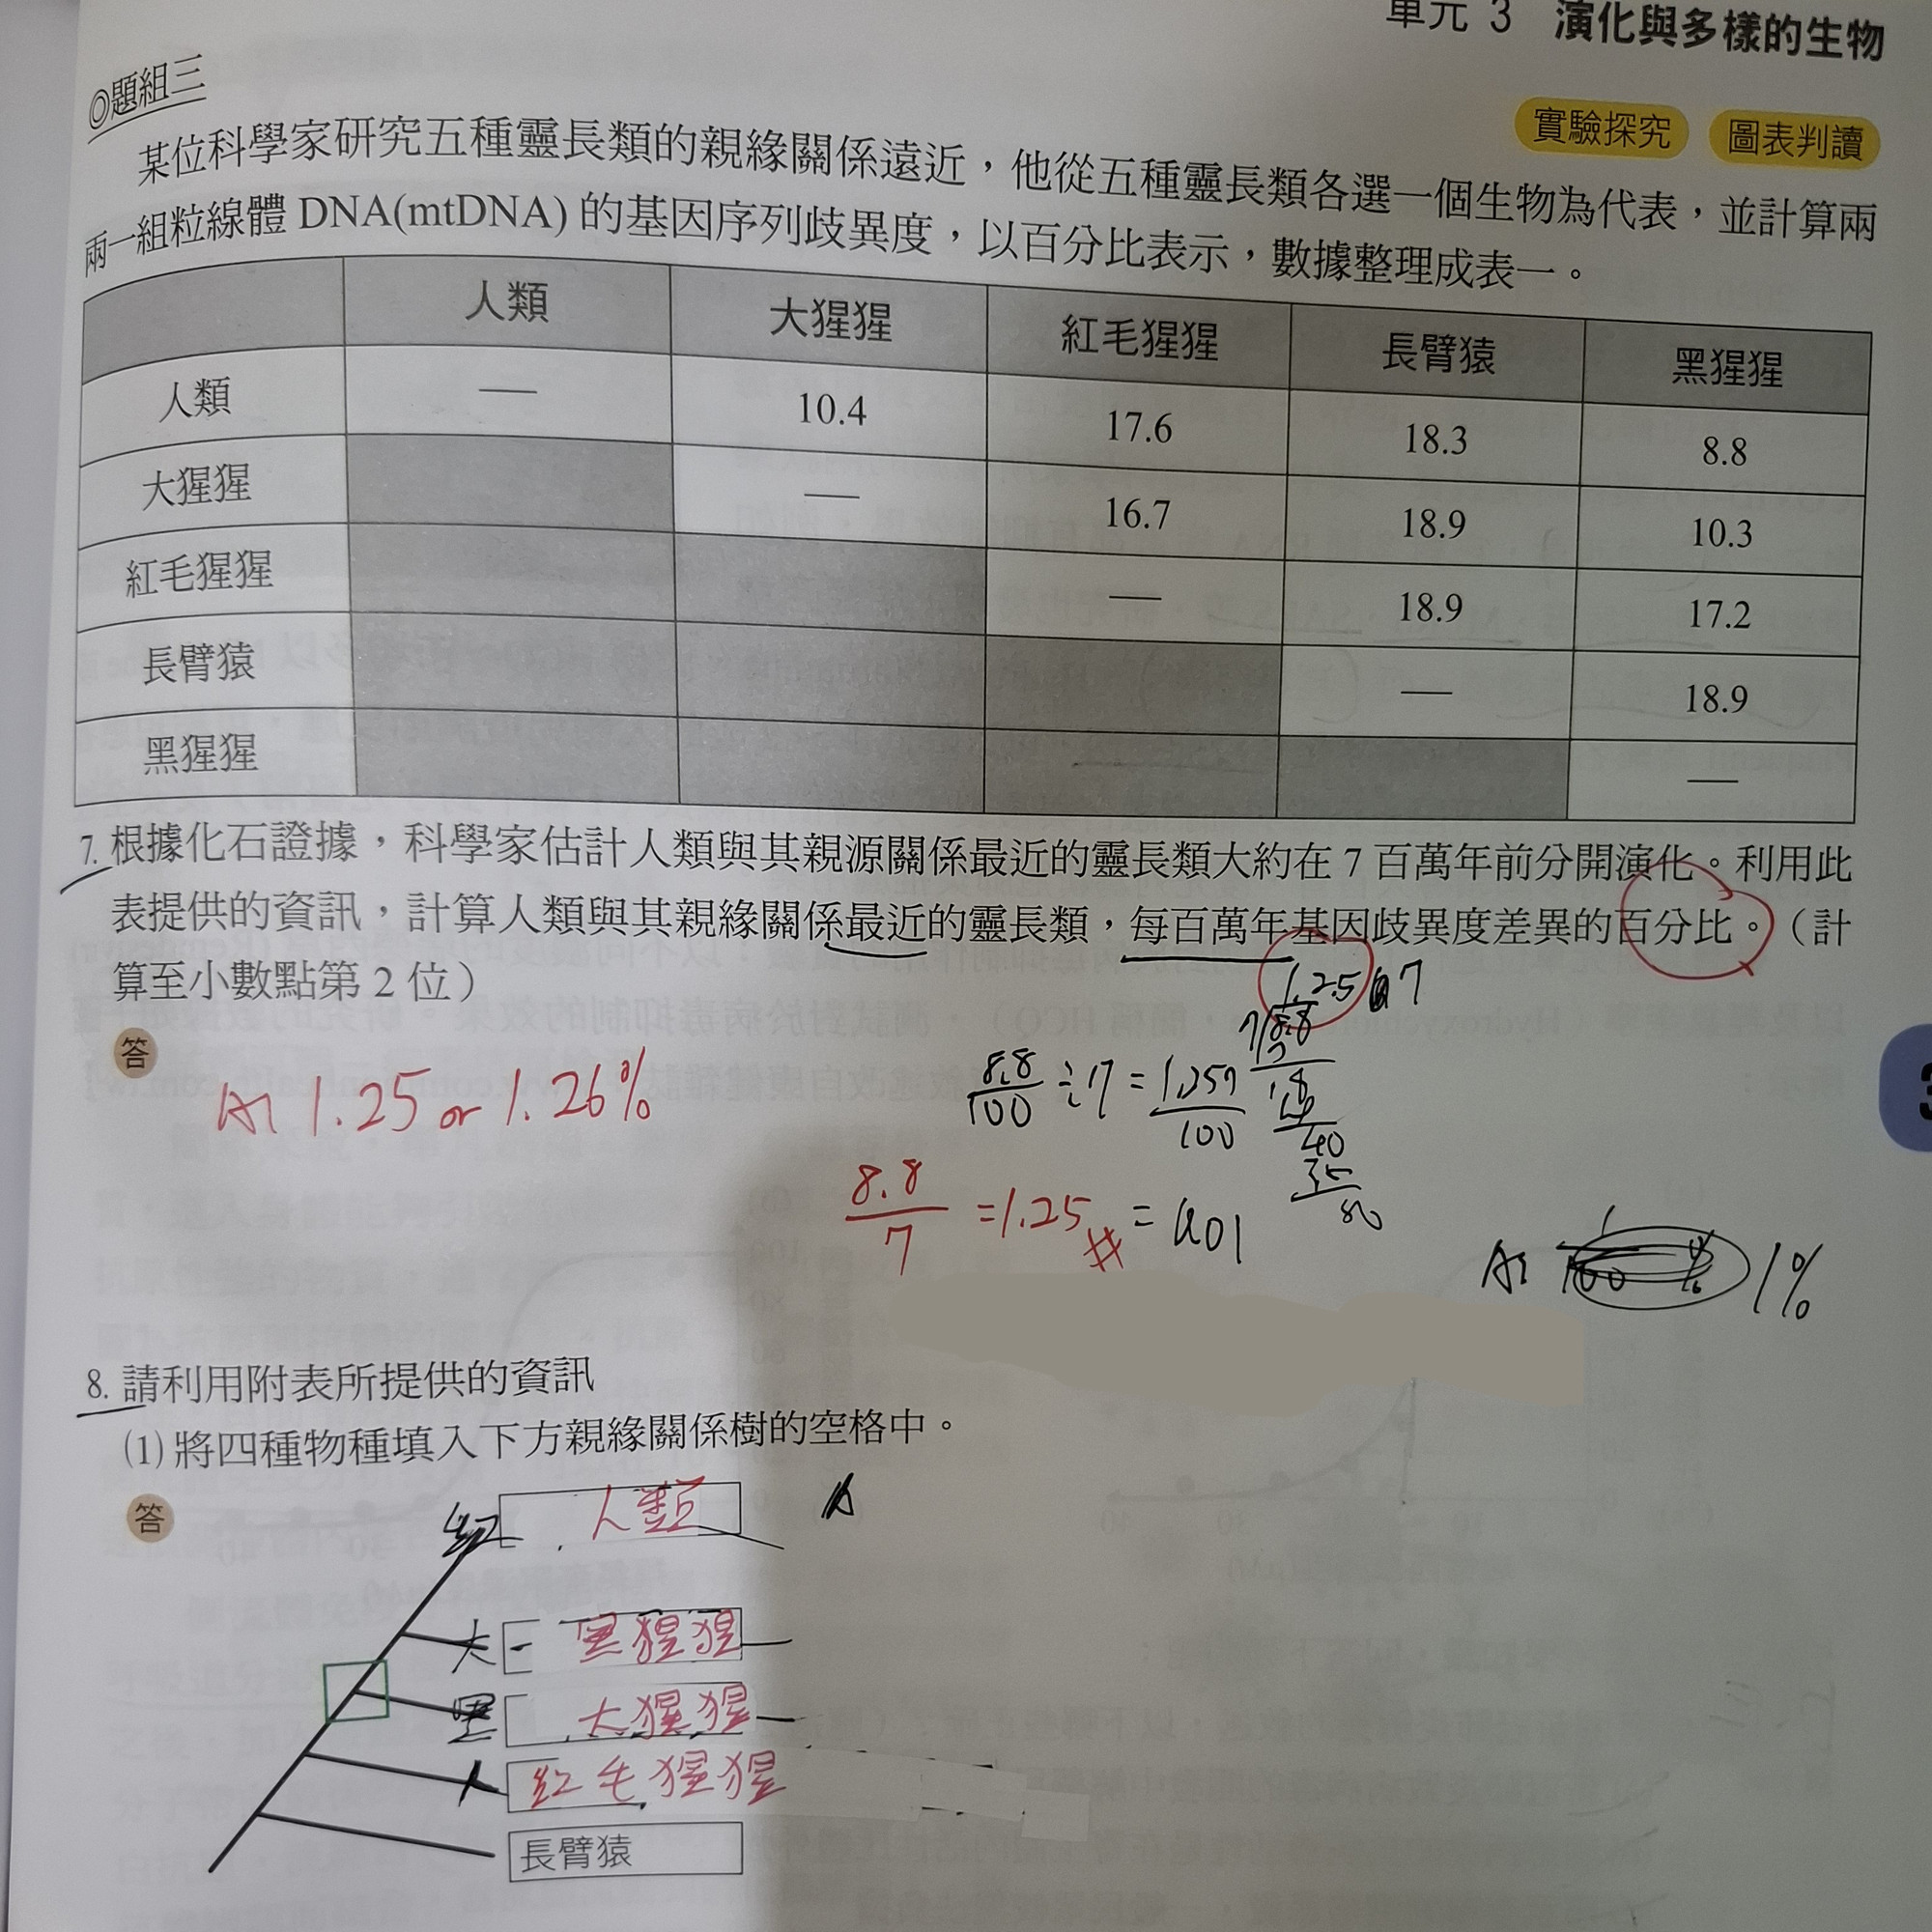 單元 3 演化與多樣的生物
◎題組三
實驗探究 圖表判讀
某位科學家研究五種靈長類的親緣關係遠近，他從五種靈長類各選一個生物為代表，並計算兩
兩一組粒線體 DNA(mtDNA) 的基因序列歧異度，以百分比表示，數據整理成表一。
人類 大猩猩 紅毛猩猩 長臂猿 黑猩猩
人類 — 10.4 17.6 18.3 8.8
大猩猩 — 16.7 18.9 10.3
紅毛猩猩 — 18.9 17.2
長臂猿 — 18.9
黑猩猩 —
7. 根據化石證據，科學家估計人類與其親源關係最近的靈長類大約在 7 百萬年前分開演化。利用此
表提供的資訊，計算人類與其親緣關係最近的靈長類，每百萬年基因歧異度差異的百分比。（計
算至小數點第 2 位）
答
A: 1.25 or 1.26%
1.25 7
7 8.8
7
18
14
40
35
50
8.8/100 ÷ 7 = 1.257/100
8.8/7 = 1.25 # = 0.01
A: 1%
3
8. 請利用附表所提供的資訊
(1) 將四種物種填入下方親緣關係樹的空格中。
答
紅 人類
大 黑猩猩
黑 大猩猩
人 紅毛猩猩
長臂猿